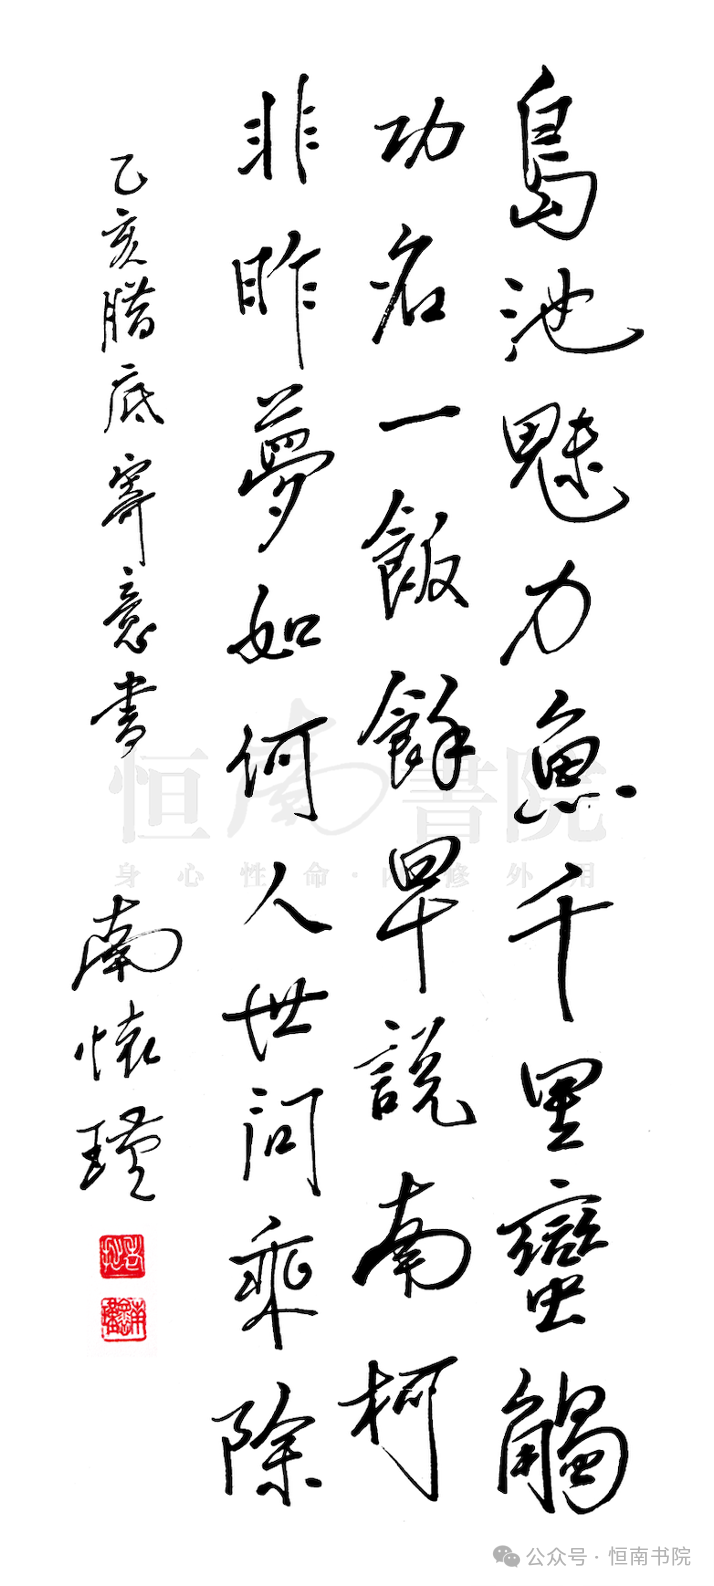 島池魅力魚千里蠻觸
功名一飯餘早說南柯
非昨夢如何人世問乘除
乙亥腊底寄意書
南懷瑾
恒南書院
身心性命·内修外用
公众号·恒南书院